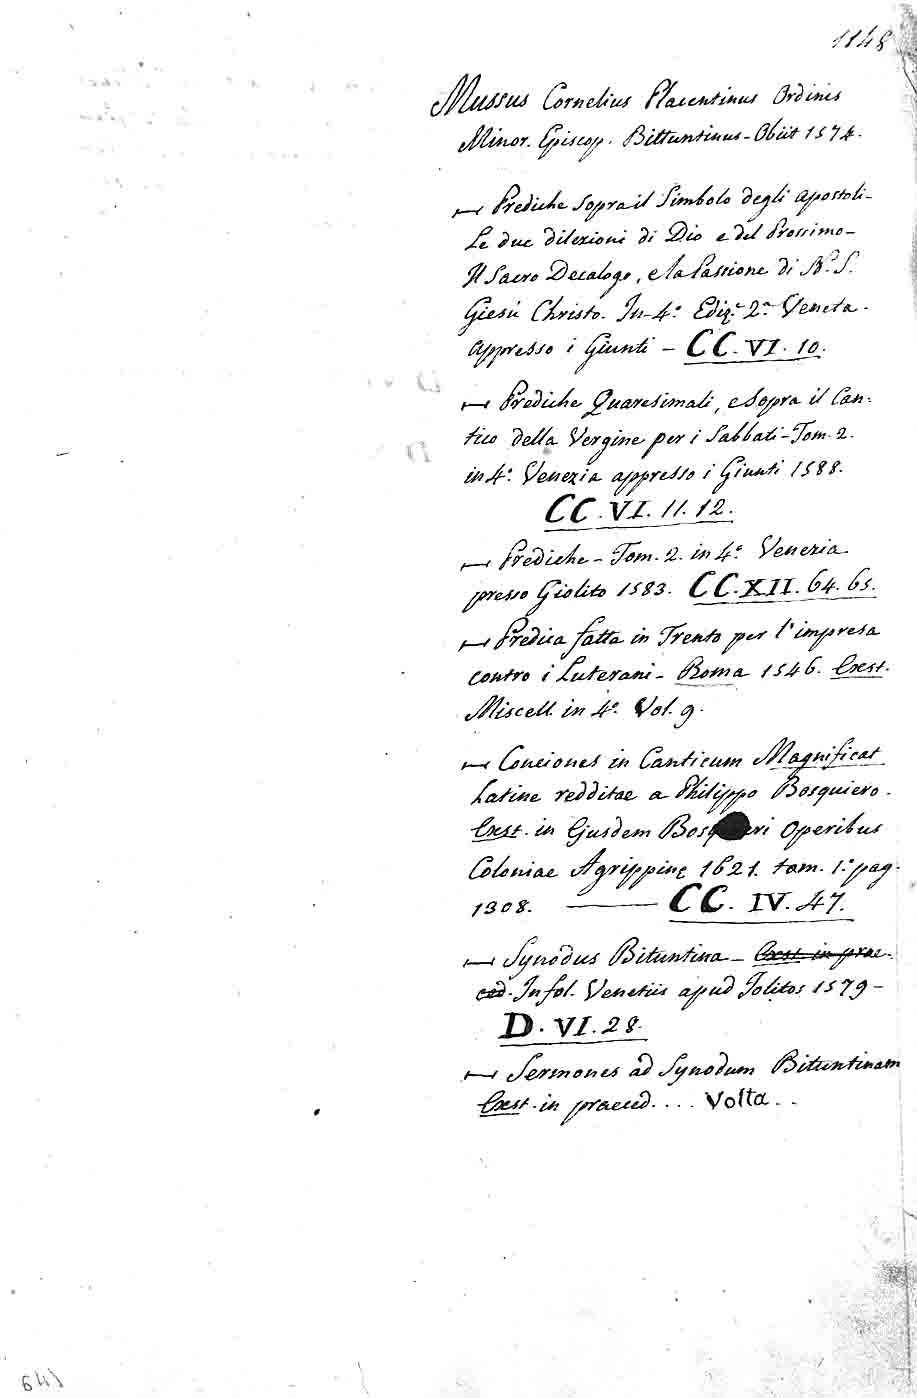 1148
Mussus Cornelius Placentinus Ordinis
Minor. Episcop. Bittuntinus - Obiit 1574.
Prediche sopra il Simbolo degli Apostoli -
Le due dilezioni di Dio e del Prossimo -
Il Sacro Decalogo, e la Passione di N. S.
Giesù Christo. In 4.° Ediz.e 2.a Veneta.
appresso i Giunti - CC. VI. 10.
Prediche Quaresimali, e sopra il Can-
tico della Vergine per i Sabbati - Tom. 2.
in 4.° Venezia appresso i Giunti 1588.
CC. VI. 11. 12.
Prediche - Tom. 2. in 4.° Venezia
presso Giolito 1583. CC. XII. 64. 65.
Predica fatta in Trento per l'impresa
contro i Luterani - Roma 1546. Exst.
Miscell. in 4.° Vol. 9.
Conciones in Canticum Magnificat
Latine redditae a Philippo Bosquiero.
Exst. in Ejusdem Bosquieri Operibus
Coloniae Agrippinę 1621. tom. 1.° pag.
1308. CC. IV. 47.
Synodus Bituntina - Exst. in prae-
ced. In fol. Venetiis apud Jolitos 1579 -
D. VI. 28.
Sermones ad Synodum Bituntinam
Exst. in praeced. . . . Volta . .
641